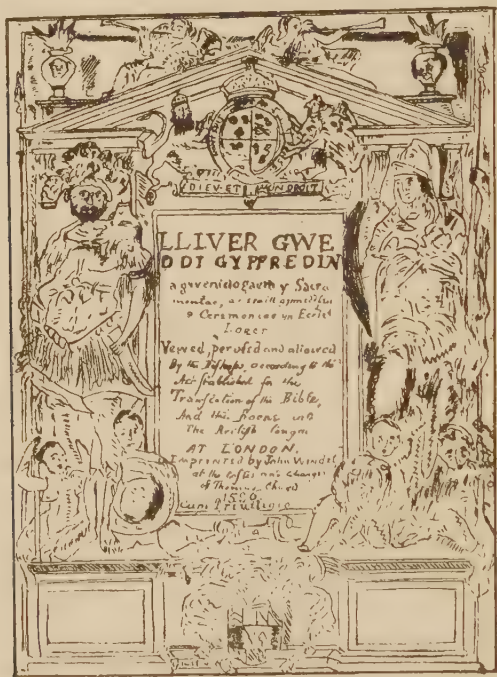 DIEV·ET MON DROIT
LLIVER GWE
DDI GYFFREDIN
a gwenidogaeth y Sacra
mentae, ac eraill
a Ceremoniae yn Eccles
LOEGR
Vewed, perused and allowed
By the Bishops, according to the
Act stablished for the
Translation of the Bible,
And this Booke into
The Brittish tongue
AT LONDON.
Imprented by John Windet
at the
of Thomas Chard
Cum Privilegio